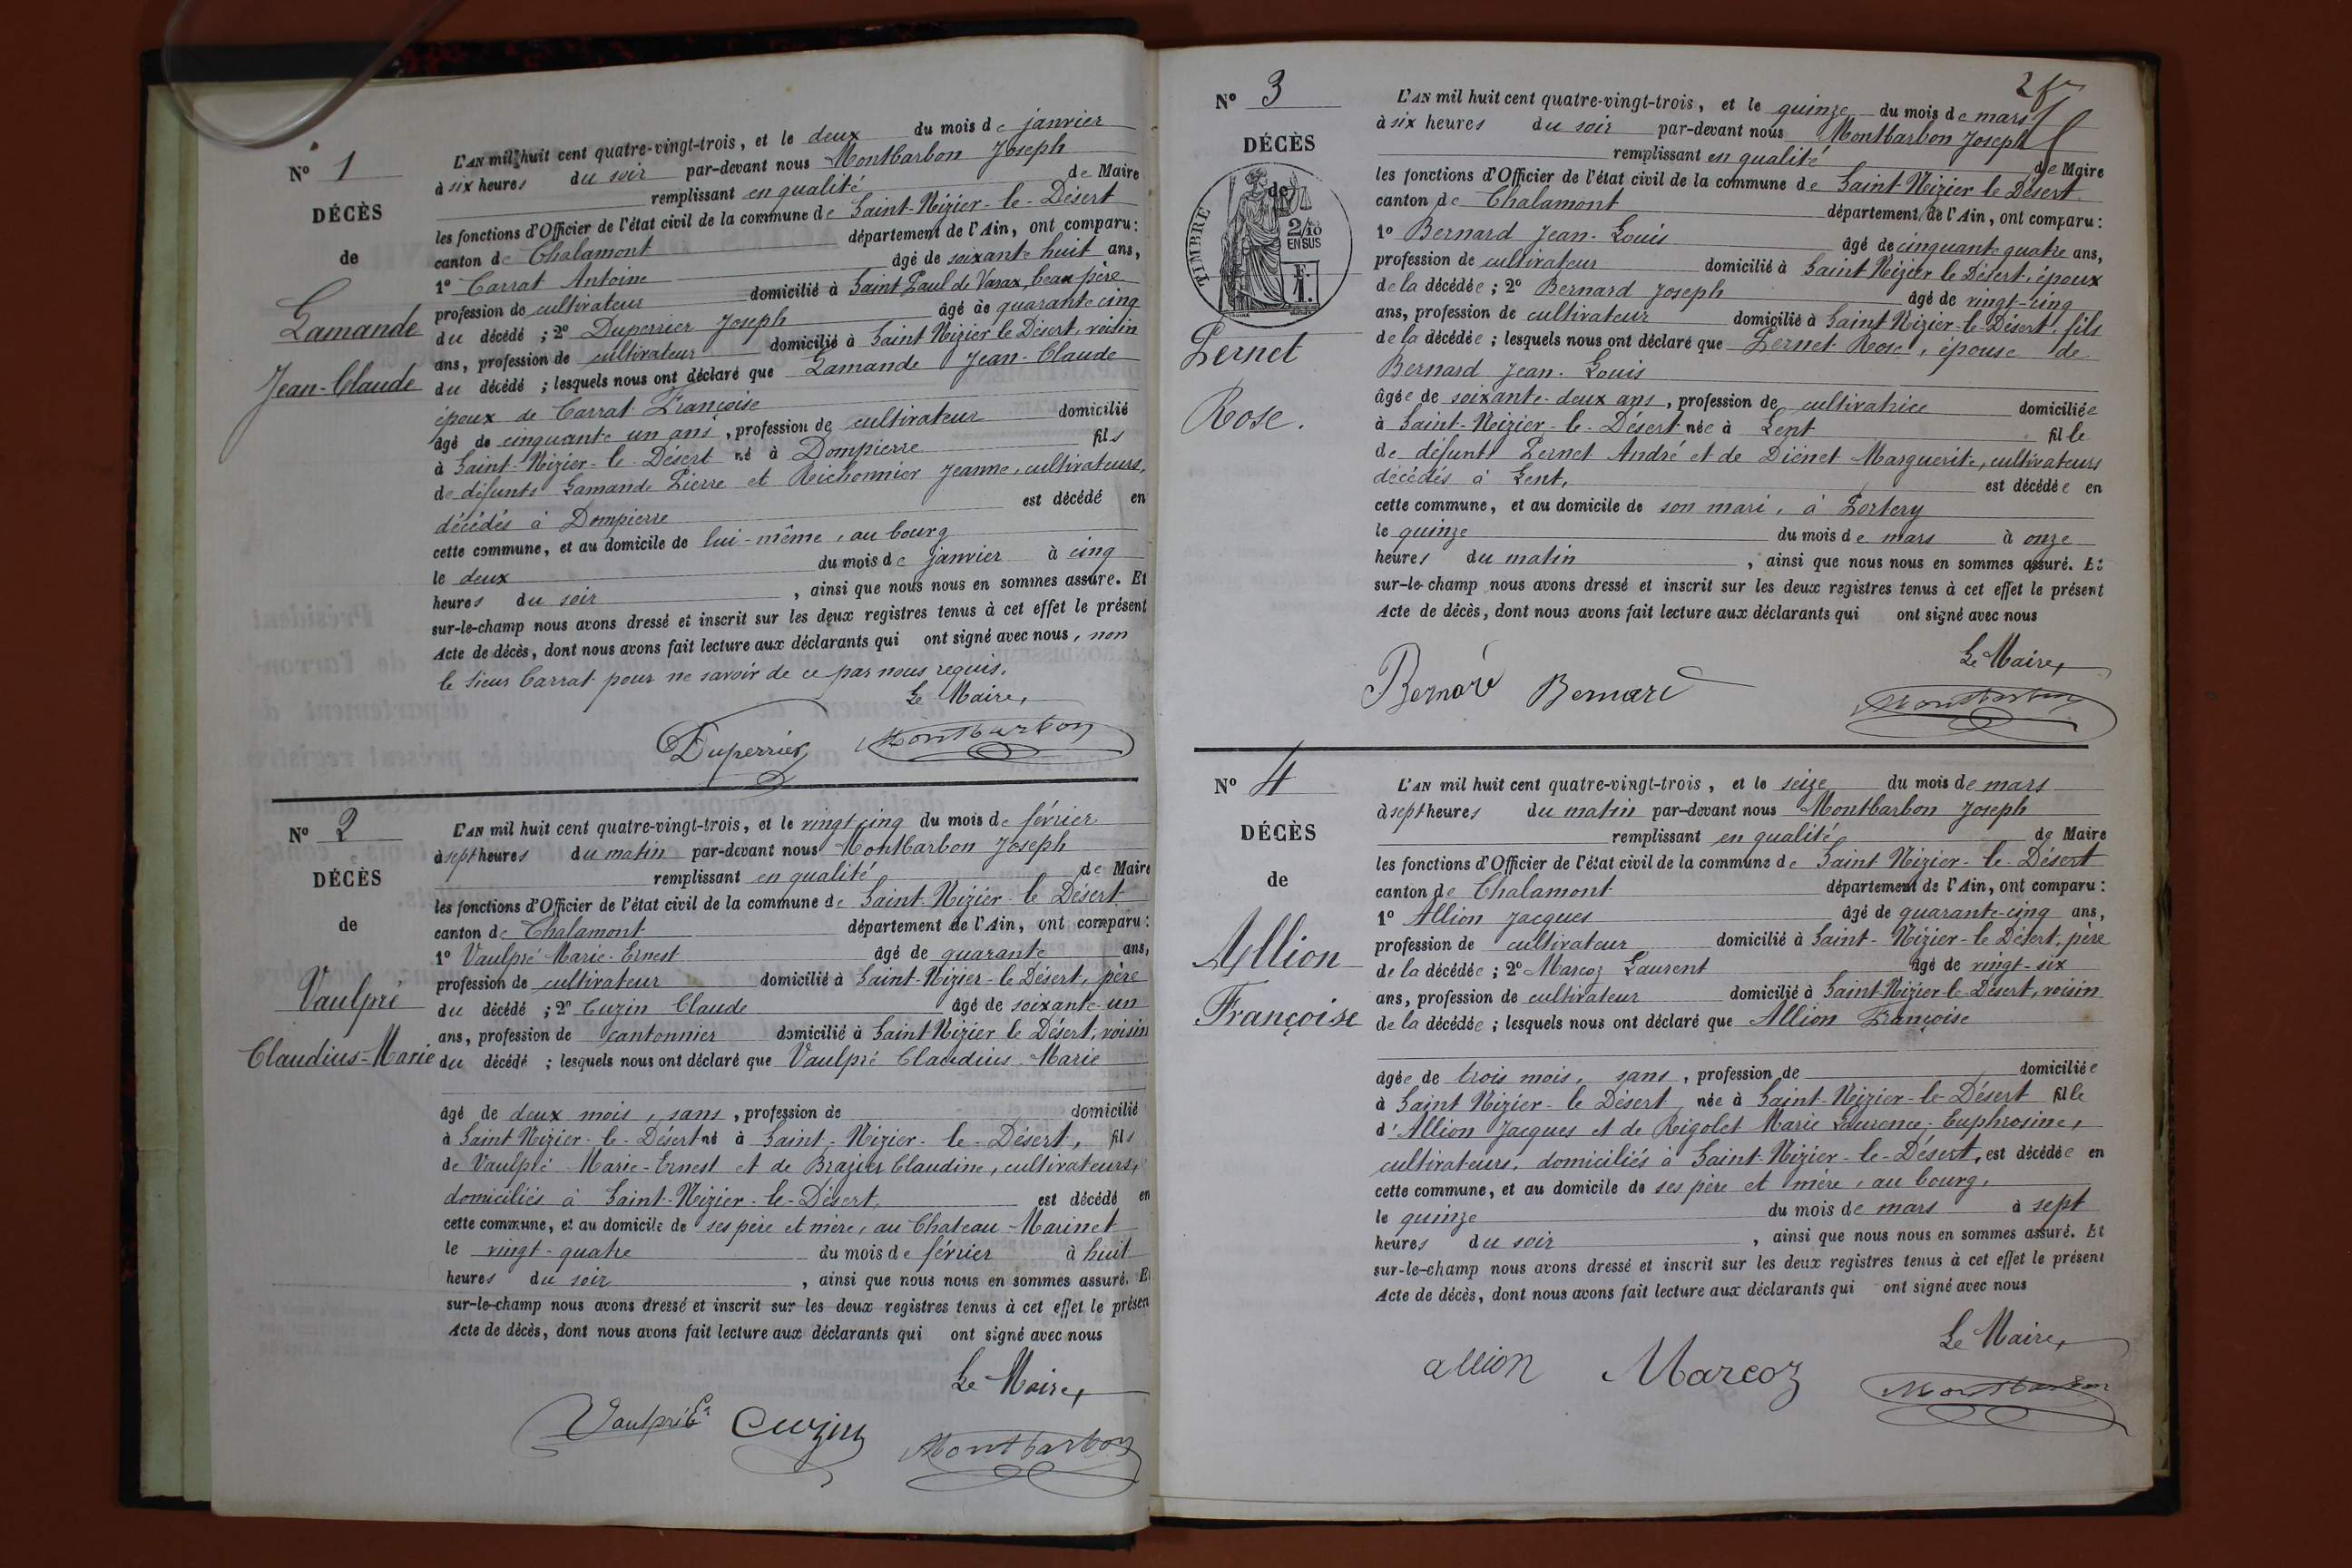 N° 1
DÉCÈS
de
Lamande
Jean-Claude
L'AN mil huit cent quatre-vingt-trois, et le deux du mois de janvier
à six heures du soir par-devant nous Montbarbon Joseph
remplissant en qualité de Maire
les fonctions d'Officier de l'état civil de la commune de Saint-Nizier-le-Désert
canton de Chalamont département de l'Ain, ont comparu:
1° Carrat Antoine âgé de soixante huit ans,
profession de cultivateur domicilié à Saint Paul de Varax, beau père
du décédé ; 2° Duperrier Joseph âgé de quarante cinq
ans, profession de cultivateur domicilié à Saint Nizier le Désert, voisin
du décédé ; lesquels nous ont déclaré que Lamande Jean-Claude
époux de Carrat Françoise
âgé de cinquante un ans, profession de cultivateur domicilié
à Saint-Nizier-le-Désert né à Dompierre fils
de défunts Lamande Pierre et Reichonnier Jeanne, cultivateurs,
décédés à Dompierre est décédé en
cette commune, et au domicile de lui-même, au bourg
le deux du mois de janvier à cinq
heures du soir, ainsi que nous nous en sommes assuré. Et
sur-le-champ nous avons dressé et inscrit sur les deux registres tenus à cet effet le présent
Acte de décès, dont nous avons fait lecture aux déclarants qui ont signé avec nous, non
le sieur Carrat pour ne savoir de ce par nous requis.
Le Maire,
Duperrier Montbarbon
N° 2
DÉCÈS
de
Vaulpré
Claudius-Marie
L'AN mil huit cent quatre-vingt-trois, et le vingt cinq du mois de février
à sept heures du matin par-devant nous Montbarbon Joseph
remplissant en qualité de Maire
les fonctions d'Officier de l'état civil de la commune de Saint-Nizier-le Désert
canton de Chalamont département de l'Ain, ont comparu:
1° Vaulpré Marie-Ernest âgé de quarante ans,
profession de cultivateur domicilié à Saint-Nizier-le Désert, père
du décédé ; 2° Cuzin Claude âgé de soixante-un
ans, profession de cantonnier domicilié à Saint Nizier le Désert, voisin
du décédé ; lesquels nous ont déclaré que Vaulpré Claudius-Marie
âgé de deux mois, sans, profession de domicilié
à Saint Nizier-le-Désert né à Saint-Nizier-le-Désert, fils
de Vaulpré Marie-Ernest et de Brazier Claudine, cultivateurs,
domiciliés à Saint-Nizier-le-Désert, est décédé en
cette commune, et au domicile de ses père et mère, au Chateau-Marinet
le vingt-quatre du mois de février à huit
heures du soir, ainsi que nous nous en sommes assuré. Et
sur-le-champ nous avons dressé et inscrit sur les deux registres tenus à cet effet le présen
Acte de décès, dont nous avons fait lecture aux déclarants qui ont signé avec nous
Le Maire,
Vaulpré Cuzin Montbarbon
2
N° 3
DÉCÈS
de
TIMBRE
2/10
EN SUS
Pernet
Rose.
L'AN mil huit cent quatre-vingt-trois, et le quinze du mois de mars
à six heures du soir par-devant nous Montbarbon Joseph
remplissant en qualité de Maire
les fonctions d'Officier de l'état civil de la commune de Saint-Nizier le Désert
canton de Chalamont département de l'Ain, ont comparu:
1° Bernard Jean-Louis âgé de cinquante quatre ans,
profession de cultivateur domicilié à Saint Nizier le Désert, époux
de la décédée ; 2° Bernard Joseph âgé de vingt-cinq
ans, profession de cultivateur domicilié à Saint Nizier-le-Désert, fils
de la décédée ; lesquels nous ont déclaré que Pernet Rose, épouse de
Bernard Jean-Louis
âgée de soixante-deux ans, profession de cultivatrice domiciliée
à Saint-Nizier-le-Désert née à Lent fille
de défunts Pernet André et de Diénet Marguerite, cultivateurs
décédés à Lent, est décédée en
cette commune, et au domicile de son mari, à Pertery
le quinze du mois de mars à onze
heures du matin, ainsi que nous nous en sommes assuré. Et
sur-le-champ nous avons dressé et inscrit sur les deux registres tenus à cet effet le présent
Acte de décès, dont nous avons fait lecture aux déclarants qui ont signé avec nous
Le Maire,
Bernard Bernard Montbarbon
N° 4
DÉCÈS
de
Allion
Françoise
L'AN mil huit cent quatre-vingt-trois, et le seize du mois de mars
à sept heures du matin par-devant nous Montbarbon Joseph
remplissant en qualité de Maire
les fonctions d'Officier de l'état civil de la commune de Saint Nizier-le-Désert
canton de Chalamont département de l'Ain, ont comparu:
1° Allion Jacques âgé de quarante-cinq ans,
profession de cultivateur domicilié à Saint-Nizier-le Désert, père
de la décédée ; 2° Marcoz Laurent âgé de vingt-six
ans, profession de cultivateur domicilié à Saint-Nizier-le-Désert, voisin
de la décédée ; lesquels nous ont déclaré que Allion Françoise
âgée de trois mois, sans, profession de domiciliée
à Saint Nizier-le Désert née à Saint-Nizier-le-Désert fille
d'Allion Jacques et de Rigolet Marie Laurence-Euphrosine,
cultivateurs, domiciliés à Saint-Nizier-le-Désert, est décédée en
cette commune, et au domicile de ses père et mère, au bourg,
le quinze du mois de mars à sept
heures du soir, ainsi que nous nous en sommes assuré. Et
sur-le-champ nous avons dressé et inscrit sur les deux registres tenus à cet effet le présent
Acte de décès, dont nous avons fait lecture aux déclarants qui ont signé avec nous
Le Maire,
allion Marcoz Montbarbon